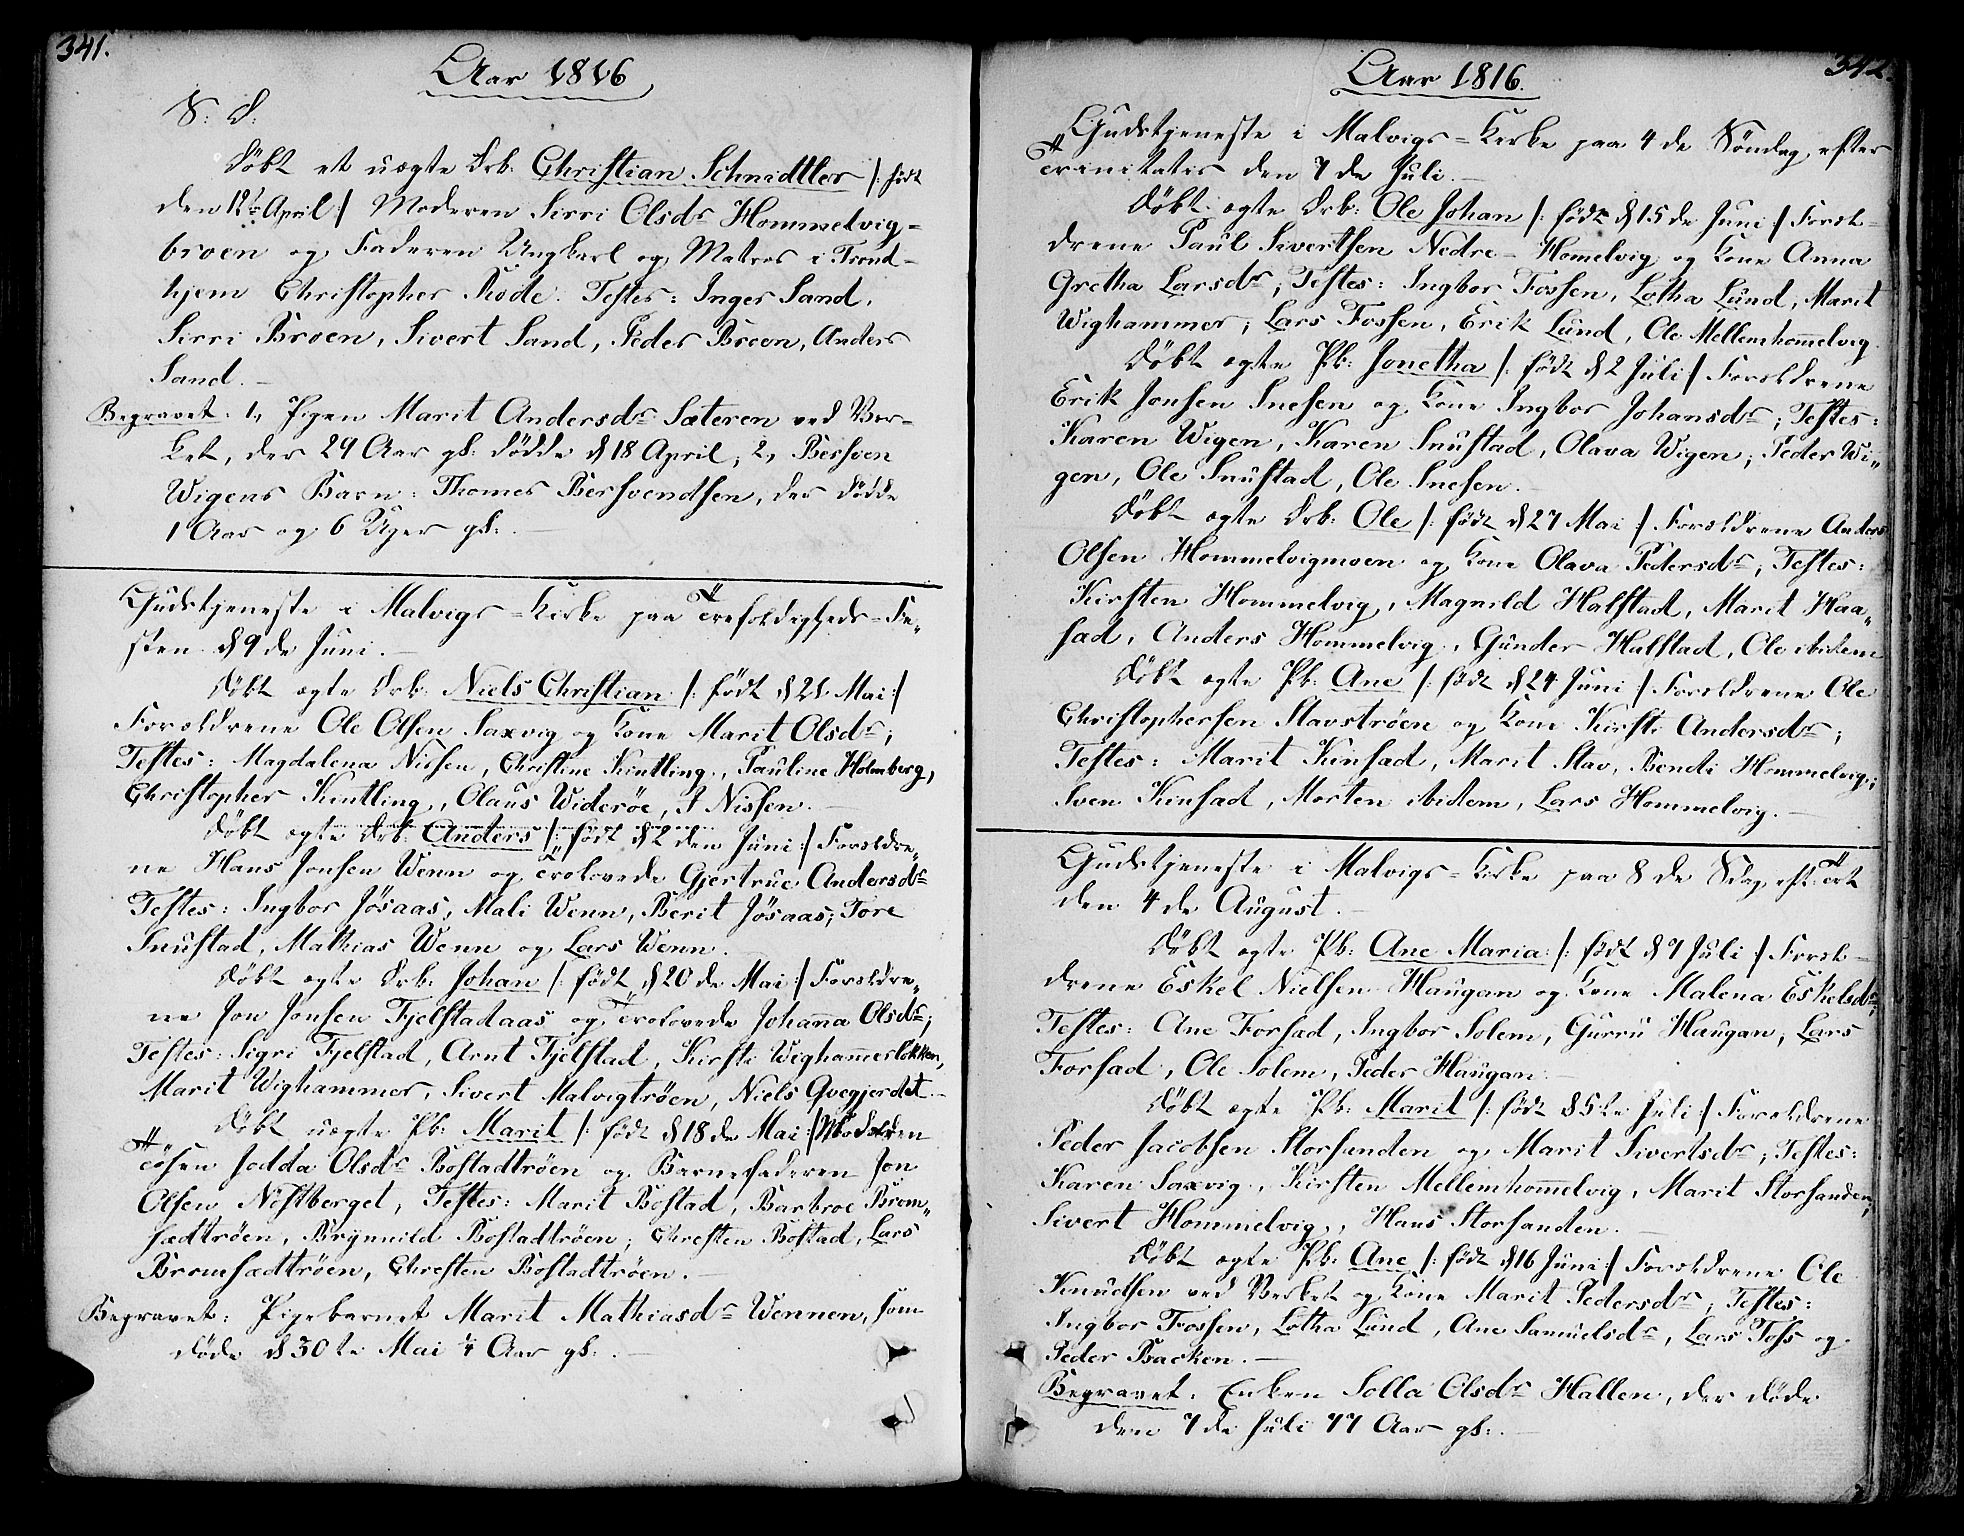 341.
Aar 1816
S: D:
Døbt et uægte Drb: Christian Schnidtler /: født
den 12te April :/ Moderen Sirri Olsdr Hommelvig-
broen og Faderen Ungkarl og Matros i Trond-
hjem Christopher Rode. Testes: Inger Sand,
Sirri Broen, Sivert Sand, Peder Broen, Anders
Sand.
Begravet: 1, Pigen Marit Andersdr Sæteren ved Ver-
ket, der 29 Aar gl: dödde d 18 April, 2, Bersven
Wigens Barn: Thomes Bersvendsen, der dödde
1 Aar og 6 Uger gl:
Gudstjeneste i Malvigs=Kirke paa Trefoldigheds-Fe„
sten d 9de Juni.
Døbt ægte Drb: Niels Christian /: født d 21 Mai :/
Forældrene Ole Olsen Saxvig og Kone Marit Olsdr;
Testes: Magdalena Nissen, Christine Kuntling, Pauline Holmberg,
Christopher Kuntling, Olaus Widerøe, J Nissen.
Døbt ægte Drb: Anders /: født d 2den Juni :/ Forældre„
ne Hans Jonsen Wenn og trolovede Gjertrue Andersdr
Testes: Ingbor Jösaas, Mali Wenn, Berit Jösaas; Tore
Snustad, Mathias Wenn og Lars Wenn.
Døbt ægte Drb: Johan /: født d 20de Mai :/ Forældre„
ne Jon Jonsen Fjelstadaas og Trolovede Johanna Olsdr;
Testes: Sigri Fjelstad, Arnt Fjelstad, Kirsti Wighammerløkken,
Marit Wighammer, Sivert Malvigtrøen, Niels Qvegjerdet.
Døbt uægte Pb: Marit /: født d 18de Mai :/ Moderen
Tösen Jodda Olsdr Bostadtrøen og Barnefaderen Jon
Olsen Nestberget, Testes: Marit Bostad, Barbroe Brom„
sædtrøen, Brynnild Bostadtrøen; Chresten Bostad, Lars
Bromsædtrøen, Chresten Bostadtrøen.
Begravet: Pigebarnet Marit Mathiasdr Wennen, som
døde d 30te Mai 4 Aar gl:
342.
Aar 1816.
Gudstjeneste i Malvigs=Kirke paa 4de Søndag efter
Trinitatis den 7de Juli.
Døbt ægte Drb: Ole Johan /: født d 15de Juni :/ Foræl-
drene Paul Sivertsen Nedre-Hom̅elvig og Kone Anna
Gretha Larsdr; Testes: Ingbor Fossen, Lotha Lund, Marit
Wighammer; Lars Fossen, Erik Lund, Ole Mellemhom̅elvig
Døbt ægte Pb: Jonetha /: født d 2 Juli :/ Forældrene
Erik Jonsen Snesen og Kone Ingbor Johansdr; Testes:
Karen Wigen, Karen Snustad, Olava Wigen; Peder Wi„
gen, Ole Snustad, Ole Snesen.
Døbt ægte Drb: Ole /: født d 27 Mai :/ Forældrene Anders
Olsen Hommelvigmoen og Kone Olava Pedersdr; Testes:
Kirsten Hommelvig, Magnild Halstad, Marit Haa„
sad, Anders Hommelvig, Gunder Halstad, Ole ibidem
Døbt ægte Pb: Ane /: født d 24 Juni :/ Forældrene Ole
Christophersen Stavstrøen og Kone Kirsti Andersdr;
Testes: Marit Kinsad, Marit Stav, Bendi Hommelvig;
Sven Kinsad, Morten ibidem, Lars Hommelvig.
Gudstjeneste i Malvigs=Kirke paa 8de Sdag eft: Trt
den 4de August.
Døbt ægte Pb: Ane Maria /: født d 7 Juli :/ Foræl-
drene Eskel Nielsen Haugan og Kone Malena Eskelsdr;
Testes: Ane Forsad, Ingbor Solem, Gurru Haugan, Lars
Forsad, Ole Solem, Peder Haugan.
Døbt ægte Pb: Marit /: født d 5te Juli :/ Forældrene
Peder Jacobsen Storsanden og Marit Sivertsdr; Testes:
Karen Saxvig, Kirsten Mellemhom̅elvig, Marit Storsanden,
Sivert Hommelvig, Hans Storsanden.
Døbt ægte Pb: Ane /: født d 16 Juni :/ Forældrene Ole
Knudtsen ved Verket og Kone Marit Pedersdr; Testes:
Ingbor Fossen, Lotha Lund, Ane Samuelsdr, Lars Foss og
Peder Backen.
Begravet: Enken Solla Olsdr Hallen, der døde
den 7de Juli 77 Aar gl: